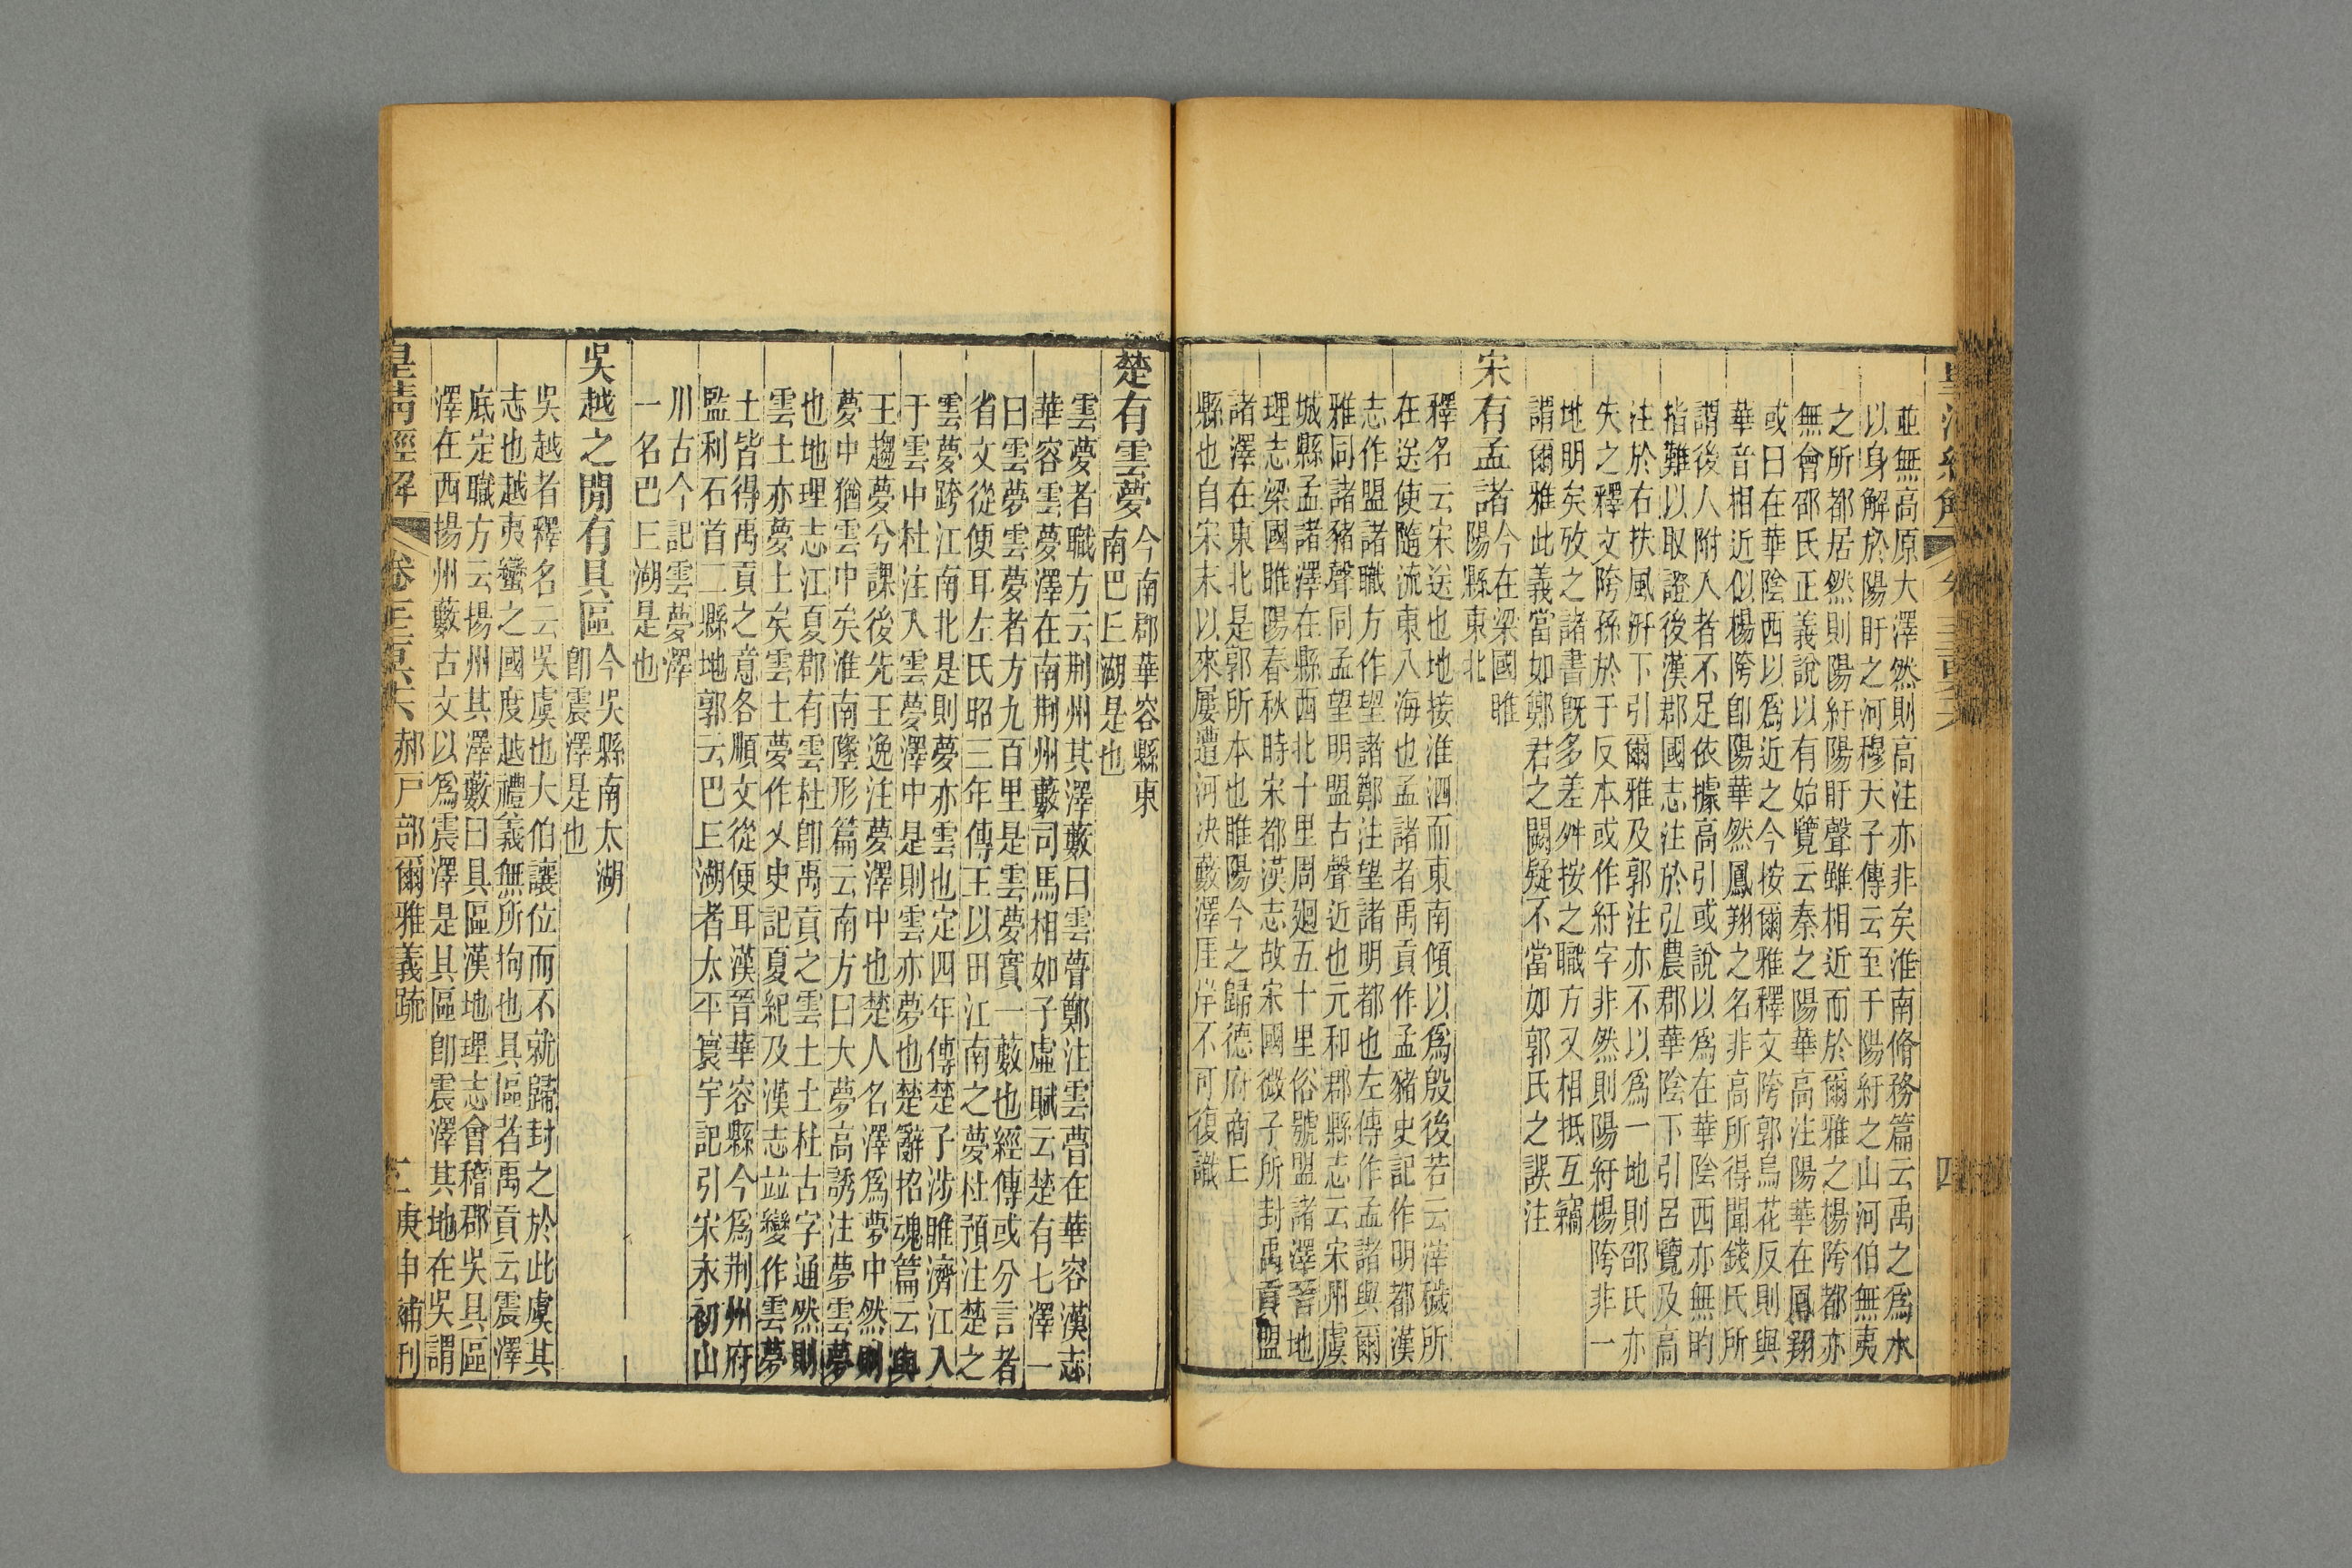 並無高原大澤然則高注亦非矣淮南脩務篇云禹之爲水
以身解於陽盱之河穆天子傳云至于陽紆之山河伯無夷
之所都居然則陽紆陽盱聲雖相近而於爾雅之楊陓都亦
無會邵氏正義說以有始覽云秦之陽華高注陽華在鳳翔
或曰在華陰西以爲近之今按爾雅釋文陓郭烏花反則與
華音相近似楊陓卽陽華然鳳翔之名非高所得聞錢氏所
謂後人附入者不足依據高引或說以爲在華陰西亦無昀
指難以取證後漢郡國志注於弘農郡華陰下引呂覽及高
注於右扶風汧下引爾雅及郭注亦不以爲一地則邵氏亦
失之釋文陓孫於于反本或作紆字非然則陽紆楊陓非一
地明矣攷之諸書旣多差舛按之職方又相抵互竊
謂爾雅此義當如鄭君之闕疑不當如郭氏之誤注
宋有孟諸今在梁國睢
陽縣東北
釋名云宋送也地接淮泗而東南傾以爲殷後若云滓穢所
在送使隨流東入海也孟諸者禹貢作孟豬史記作明都漢
志作盟諸職方作望諸鄭注望諸明都也左傳作孟諸與爾
雅同諸豬聲同孟望明盟古聲近也元和郡縣志云宋州虞
城縣孟諸澤在縣西北十里周廻五十里俗號盟諸澤晉地
理志梁國睢陽春秋時宋都漢志故宋國微子所封禹貢盟
諸澤在東北是郭所本也睢陽今之歸德府商丘
縣也自宋末以來屢遭河決藪澤厓岸不可復識
楚有雲夢今南郡華容縣東
南巴丘湖是也
雲夢者職方云荆州其澤藪曰雲瞢鄭注雲瞢在華容漢志
華容雲夢澤在南荆州藪司馬相如子虛賦云楚有七澤一
曰雲夢雲夢者方九百里是雲夢實一藪也經傳或分言者
省文從便耳左氏昭三年傳王以田江南之夢杜預注楚之
雲夢跨江南北是則夢亦雲也定四年傳楚子涉睢濟江入
于雲中杜注入雲夢澤中是則雲亦夢也楚辭招魂篇云與
王趨夢兮課後先王逸注夢澤中也楚人名澤爲夢中然則
夢中猶雲中矣淮南墬形篇云南方曰大夢高誘注夢雲夢
也地理志江夏郡有雲杜卽禹貢之雲土土杜古字通然則
雲土亦夢土矣雲土夢作乂史記夏紀及漢志竝變作雲夢
土皆得禹貢之意各順文從便耳漢晉華容縣今爲荆州府
監利石首二縣地郭云巴丘湖者太平寰宇記引宋永初山
川古今記雲夢澤
一名巴丘湖是也
吳越之閒有具區今吳縣南太湖
卽震澤是也
吳越者釋名云吳虞也大伯讓位而不就歸封之於此虞其
志也越夷蠻之國度越禮義無所拘也具區者禹貢云震澤
底定職方云揚州其澤藪曰具區漢地理志會稽郡吳具區
澤在西揚州藪古文以爲震澤是具區卽震澤其地在吳謂
皇淸經解 卷二百六十六 郝戸部爾雅義疏 庚申補刊